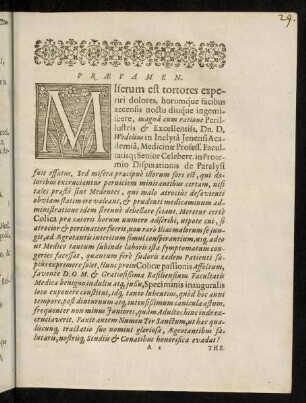 29.
PRÆFAMEN.
MIserum est tortores expe-
riri dolores, horumque facibus
accensis noctu diuque ingemi-
scere, magnâ cum ratione Peril-
lustris & Excellentiss. Dn. D.
Wedelius in Inclytâ Jenensi Aca-
demiâ, Medicinæ Profess. Facul-
tatisq; Senior Celeberr. in Proœ-
mio Disputationis de Paralysi
fuit effatus, Sed misera præcipuè illorum sors est, qui do-
loribus excruciantur perniciem minitantibus certam, nisi
tales præstò sint Medentes, qui malo atrociùs desævienti
obviam statim ire valeant, & prudenti medicaminum ad-
ministratione idem strenuè debellare sciant. Meretur certè
Colica præ cæteris horum numero adscribi, utpote cui, si
atrocior & pertinacior fuerit, non rarò Ilias malorum se jun-
git, ad Ægrotantis interitum simul conspirantium, atq; adeò
ut Medico tantum subinde laboris ista Symptomatum con-
geries facessat, quantum ferè sudoris eadem Patienti sæ-
piùs exprimere solet. Hunc proin Colicæ passionis Affectum,
favente D.O.M. & Gratiosissimæ Basiliensium Facultatis
Medicæ benigno indultu atq; jussu, Speciminis inauguralis
loco exponere constitui, idq; tanto lubentius, quòd hoc anni
tempore, post diuturnum atq; intensissimum caniculæ æstum,
frequenter non minus Juniores, quàm Adultos hinc inde ex-
cruciaverit. Faxit autem Numen Ter Sanctum, ut hæc qua-
liscunq; tractatio suo nomini gloriosa, Ægrotantibus sa-
lutaris, nostrisq; Studiis & Conatibus honorifica evadat!
A 2
THE.